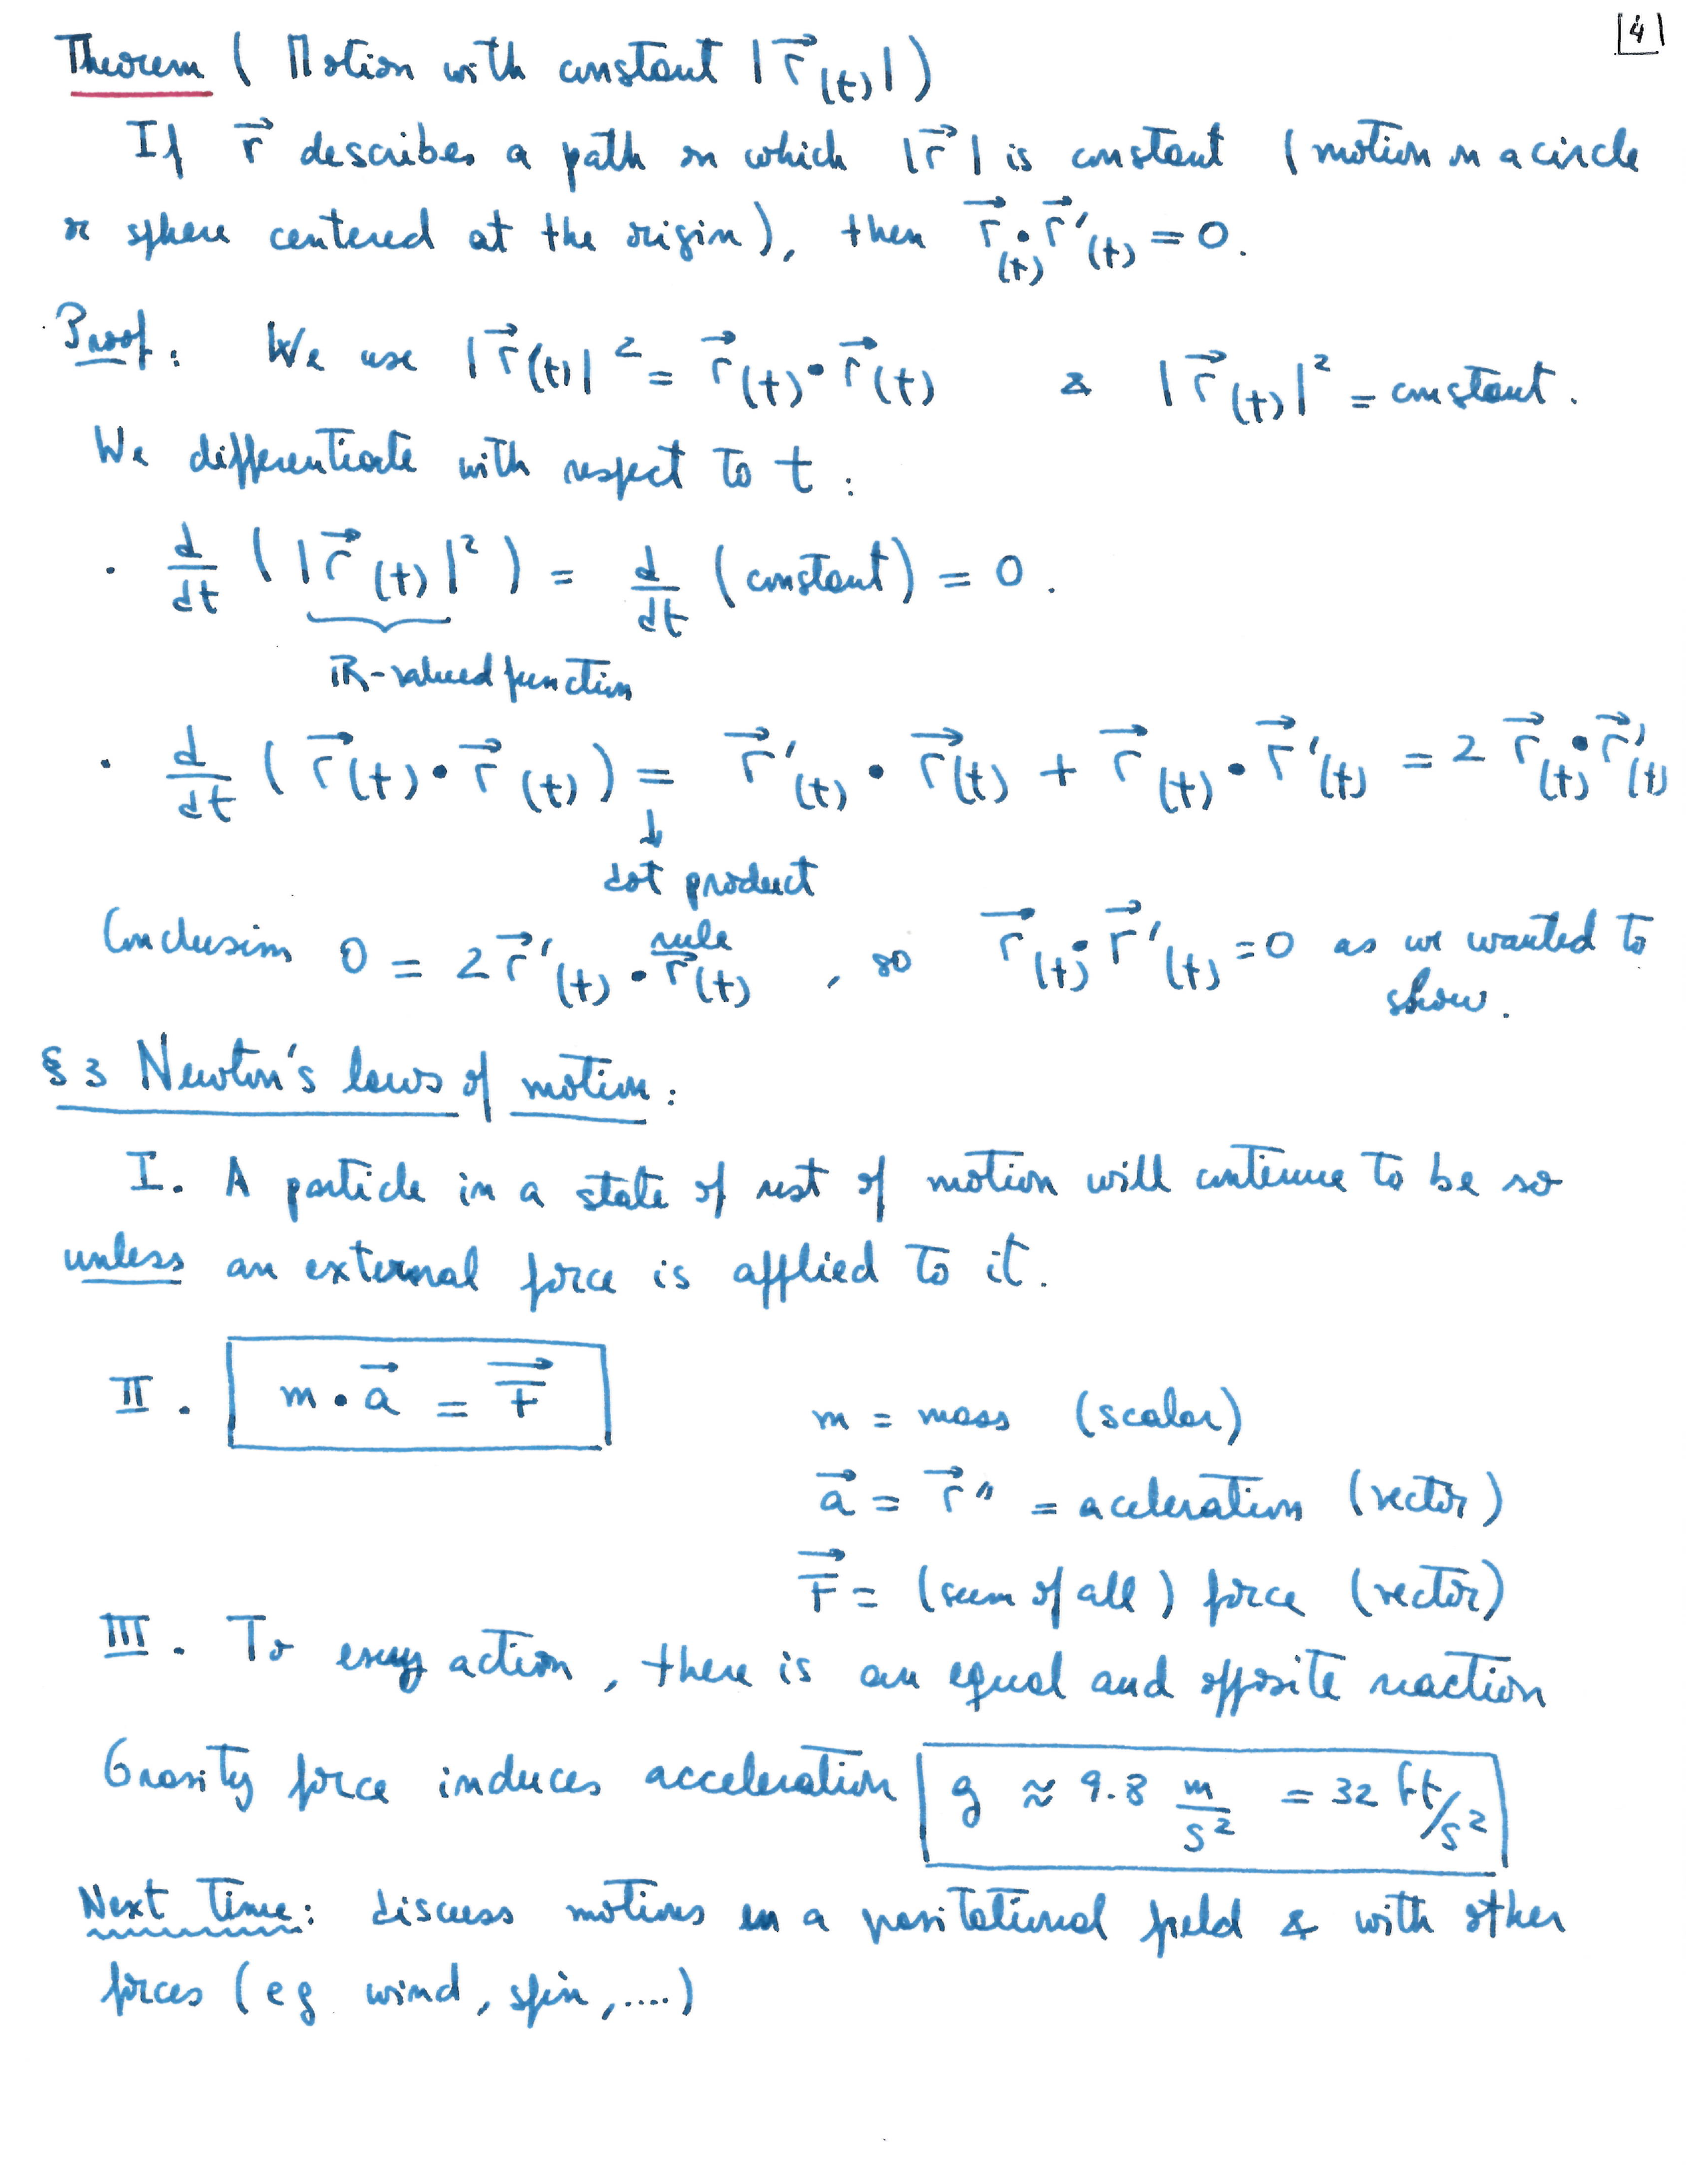 4
Theorem ( Motion with constant |r⃗(t)|)
If r⃗ describes a path on which |r⃗| is constant (motion on a circle
or sphere centered at the origin), then r⃗(t)•r⃗'(t) = 0.
Proof: We use |r⃗(t)|² = r⃗(t)•r⃗(t) & |r⃗(t)|² = constant.
We differentiate with respect to t:
· d/dt (|r⃗(t)|²) = d/dt (constant) = 0.
ℝ-valued function
· d/dt ( r⃗(t)•r⃗(t)) = r⃗'(t)•r⃗(t) + r⃗(t)•r⃗'(t) = 2 r⃗(t)•r⃗'(t)
↓
dot product
rule
Conclusion 0 = 2r⃗'(t)•r⃗(t), so r⃗(t)•r⃗'(t)=0 as we wanted to
show.
§3 Newton's laws of motion:
I. A particle in a state of rest of motion will continue to be so
unless an external force is applied to it.
II. m•a⃗ = F⃗
m = mass (scalar)
a⃗ = r⃗" = aceleration (vector)
F⃗ = (sum of all) force (vector)
III. To every action, there is an equal and opposite reaction
Gravity force induces acceleration g ≈ 9.8 m/s² = 32 ft/s²
Next time: discuss motions in a gravitational field & with other
forces (eg wind, spin,....)